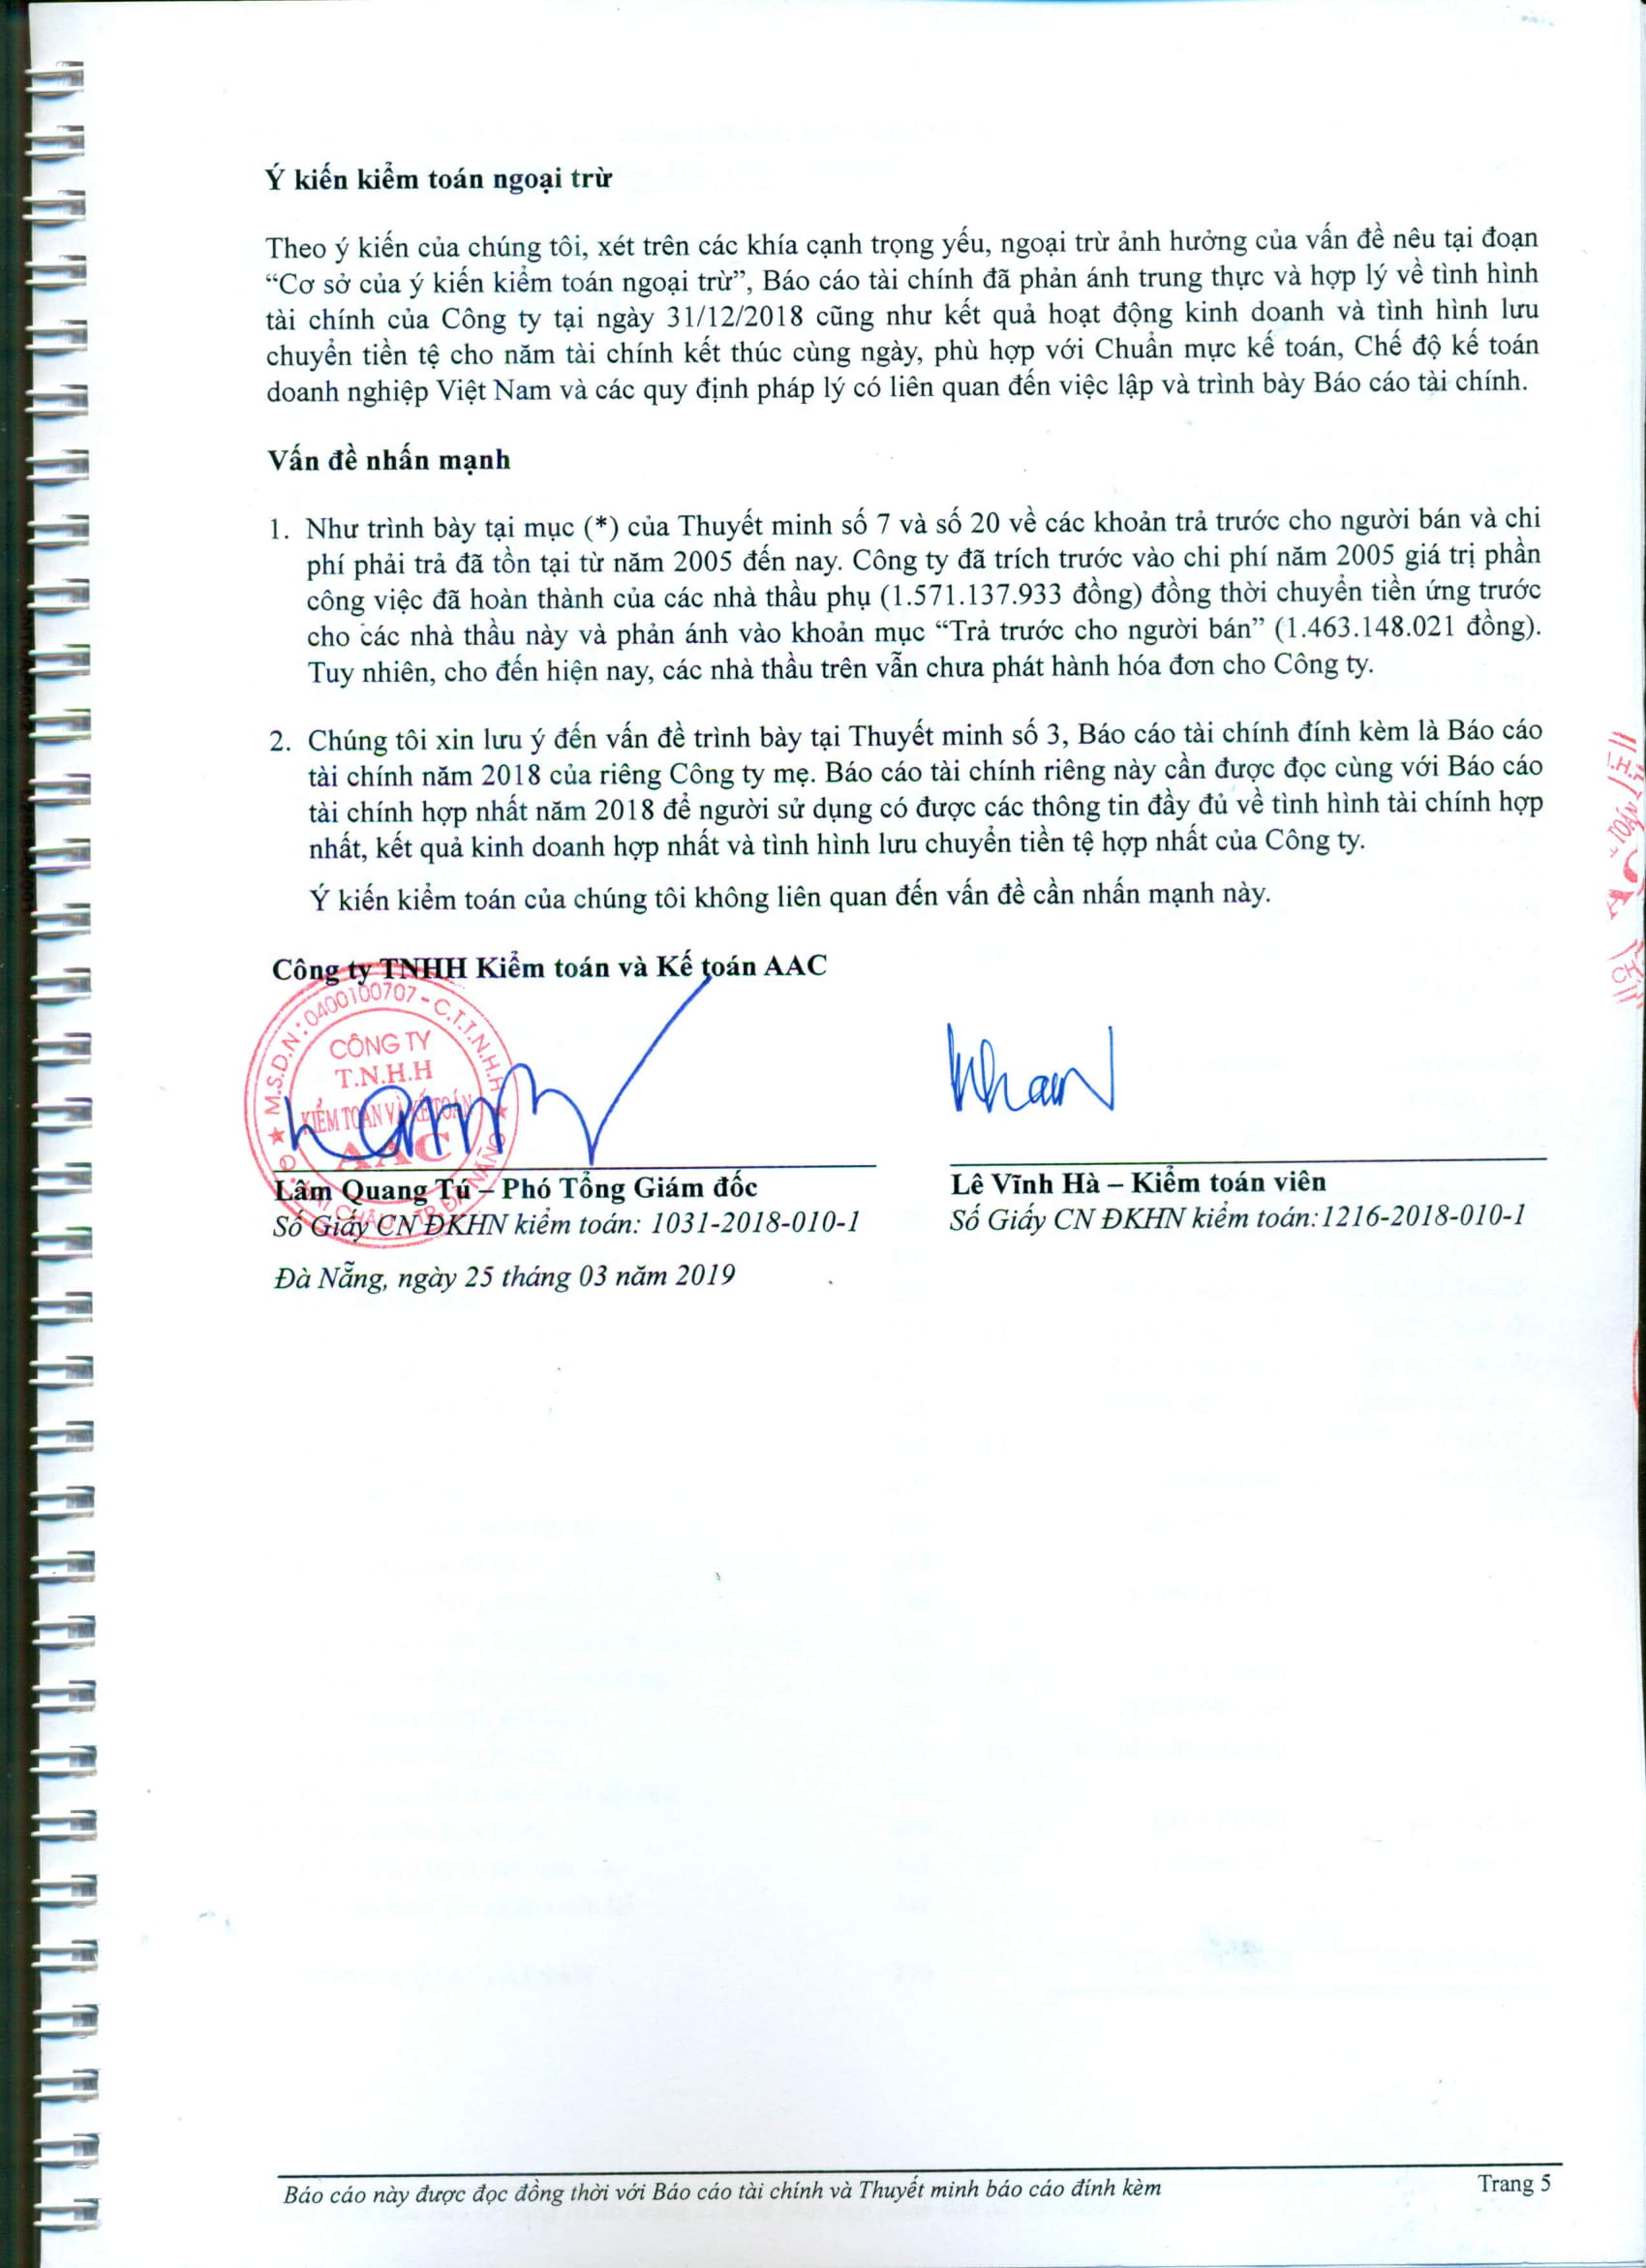 Ý kiến kiểm toán ngoại trừ
Theo ý kiến của chúng tôi, xét trên các khía cạnh trọng yếu, ngoại trừ ảnh hưởng của vấn đề nêu tại đoạn
“Cơ sở của ý kiến kiểm toán ngoại trừ”, Báo cáo tài chính đã phản ánh trung thực và hợp lý về tình hình
tài chính của Công ty tại ngày 31/12/2018 cũng như kết quả hoạt động kinh doanh và tình hình lưu
chuyển tiền tệ cho năm tài chính kết thúc cùng ngày, phù hợp với Chuẩn mực kế toán, Chế độ kế toán
doanh nghiệp Việt Nam và các quy định pháp lý có liên quan đến việc lập và trình bày Báo cáo tài chính.
Vấn đề nhấn mạnh
1. Như trình bày tại mục (*) của Thuyết minh số 7 và số 20 về các khoản trả trước cho người bán và chi
phí phải trả đã tồn tại từ năm 2005 đến nay. Công ty đã trích trước vào chi phí năm 2005 giá trị phần
công việc đã hoàn thành của các nhà thầu phụ (1.571.137.933 đồng) đồng thời chuyển tiền ứng trước
cho các nhà thầu này và phản ánh vào khoản mục “Trả trước cho người bán” (1.463.148.021 đồng).
Tuy nhiên, cho đến hiện nay, các nhà thầu trên vẫn chưa phát hành hóa đơn cho Công ty.
2. Chúng tôi xin lưu ý đến vấn đề trình bày tại Thuyết minh số 3, Báo cáo tài chính đính kèm là Báo cáo
tài chính năm 2018 của riêng Công ty mẹ. Báo cáo tài chính riêng này cần được đọc cùng với Báo cáo
tài chính hợp nhất năm 2018 để người sử dụng có được các thông tin đầy đủ về tình hình tài chính hợp
nhất, kết quả kinh doanh hợp nhất và tình hình lưu chuyển tiền tệ hợp nhất của Công ty.
Ý kiến kiểm toán của chúng tôi không liên quan đến vấn đề cần nhấn mạnh này.
Công ty TNHH Kiểm toán và Kế toán AAC
M.S.D.N: 0400100707 - C.T.T.N.H.H
CÔNG TY
T.N.H.H
KIỂM TOÁN VÀ KẾ TOÁN
AAC
CHÂU - TP. ĐÀ NẴNG
Lâm Quang Tú – Phó Tổng Giám đốc
Số Giấy CN ĐKHN kiểm toán: 1031-2018-010-1
Lê Vĩnh Hà – Kiểm toán viên
Số Giấy CN ĐKHN kiểm toán:1216-2018-010-1
Đà Nẵng, ngày 25 tháng 03 năm 2019
Báo cáo này được đọc đồng thời với Báo cáo tài chính và Thuyết minh báo cáo đính kèm
Trang 5